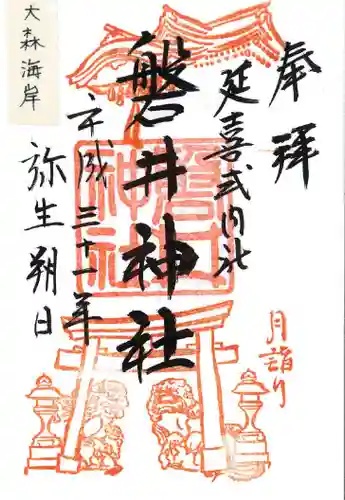 奉拝
延喜式内社
磐井神社
平成三十一年
弥生朔日
大森海岸
月詣り
磐井
神社